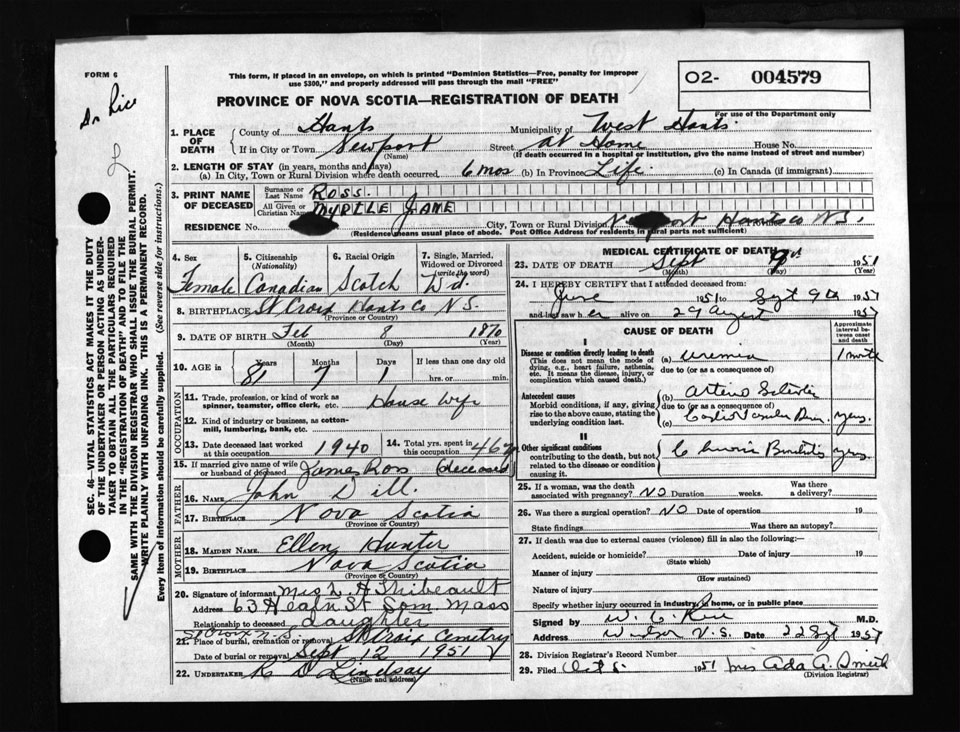 FORM 6
Dr Rice
This form, if placed in an envelope, on which is printed "Dominion Statistics—Free, penalty for improper
use $300," and properly addressed will pass through the mail "FREE"
PROVINCE OF NOVA SCOTIA—REGISTRATION OF DEATH
O2- 004579
For use of the Department only
1. PLACE OF DEATH
County of Hants Municipality of West Hants.
If in City or Town Newport (Name) Street at Home House No.
(If death occurred in a hospital or institution, give the name instead of street and number)
2. LENGTH OF STAY (in years, months and days)
(a) In City, Town or Rural Division where death occurred. 6 mos (b) In Province Life. (c) In Canada (if immigrant)
3. PRINT NAME OF DECEASED
Surname or Last Name ROSS.
All Given or Christian Names MYRTLE JANE
RESIDENCE No. City, Town or Rural Division Newport Hants Co N.S.
(Residence means usual place of abode. Post Office Address for residents in rural parts not sufficient)
4. Sex Female
5. Citizenship (Nationality) Canadian
6. Racial Origin Scotch
7. Single, Married, Widowed or Divorced (write the word) Wd.
8. BIRTHPLACE St Croix Hants Co N.S.
(Province or Country)
9. DATE OF BIRTH Feb 8 1870
(Month) (Day) (Year)
10. AGE in Years 81 Months 7 Days 1 If less than one day old
hrs. or min.
OCCUPATION
11. Trade, profession, or kind of work as spinner, teamster, office clerk, etc. House Wife
12. Kind of industry or business, as cotton-mill, lumbering, bank, etc.
13. Date deceased last worked at this occupation. 1940
14. Total yrs. spent in this occupation 46
15. If married give name of wife or husband of deceased James Ross (deceased)
FATHER
16. NAME John Dill.
17. BIRTHPLACE Nova Scotia
(Province or Country)
MOTHER
18. MAIDEN NAME Ellen Hunter
19. BIRTHPLACE Nova Scotia
(Province or Country)
20. Signature of informant Mrs L. H Thibeault
Address 63 Heath St Som Mass
Relationship to deceased daughter
21. Place of burial, cremation or removal St Croix N.S St Croix Cemetry
Date of burial or removal Sept 12 1951
22. UNDERTAKER R D Lindsay
(Name and address)
MEDICAL CERTIFICATE OF DEATH
23. DATE OF DEATH Sept 1951
(Month) (Day) (Year)
24. I HEREBY CERTIFY that I attended deceased from:
June 1951 to Sept 9th 1951
and last saw her alive on 29 August 1951
CAUSE OF DEATH
Approximate interval between onset and death
I
Disease or condition directly leading to death (a) Uremia 1 month
(This does not mean the mode of dying, e.g., heart failure, asthenia, etc. It means the disease, injury, or complication which caused death.)
due to (or as a consequence of)
Antecedent causes
Morbid conditions, if any, giving rise to the above cause, stating the underlying condition last.
(b) Arterio
due to (or as a consequence of)
(c) Cardio Vascular yrs.
II
Other significant conditions contributing to the death, but not related to the disease or condition causing it
Chronic Bronchitis yrs.
25. If a woman, was the death associated with pregnancy? NO Duration weeks. Was there a delivery?
26. Was there a surgical operation? NO Date of operation 19
State findings Was there an autopsy?
27. If death was due to external causes (violence) fill in also the following:—
Accident, suicide or homicide? Date of injury 19
(State which)
Manner of injury
(How sustained)
Nature of injury
Specify whether injury occurred in Industry, in home, or in public place
Signed by W. C. Rice M.D.
Address Windsor N.S. Date 22 1951
28. Division Registrar's Record Number
29. Filed Oct 5 1951 Mrs Ada A. Smith
(Division Registrar)
SEC. 46—VITAL STATISTICS ACT MAKES IT THE DUTY
OF THE UNDERTAKER OR PERSON ACTING AS UNDER-
TAKER TO OBTAIN ALL THE PARTICULARS REQUIRED
IN THE "REGISTRATION OF DEATH" AND TO FILE THE
SAME WITH THE DIVISION REGISTRAR WHO SHALL ISSUE THE BURIAL PERMIT.
WRITE PLAINLY WITH UNFADING INK. THIS IS A PERMANENT RECORD.
Every item of information should be carefully supplied. (See reverse side for instructions.)